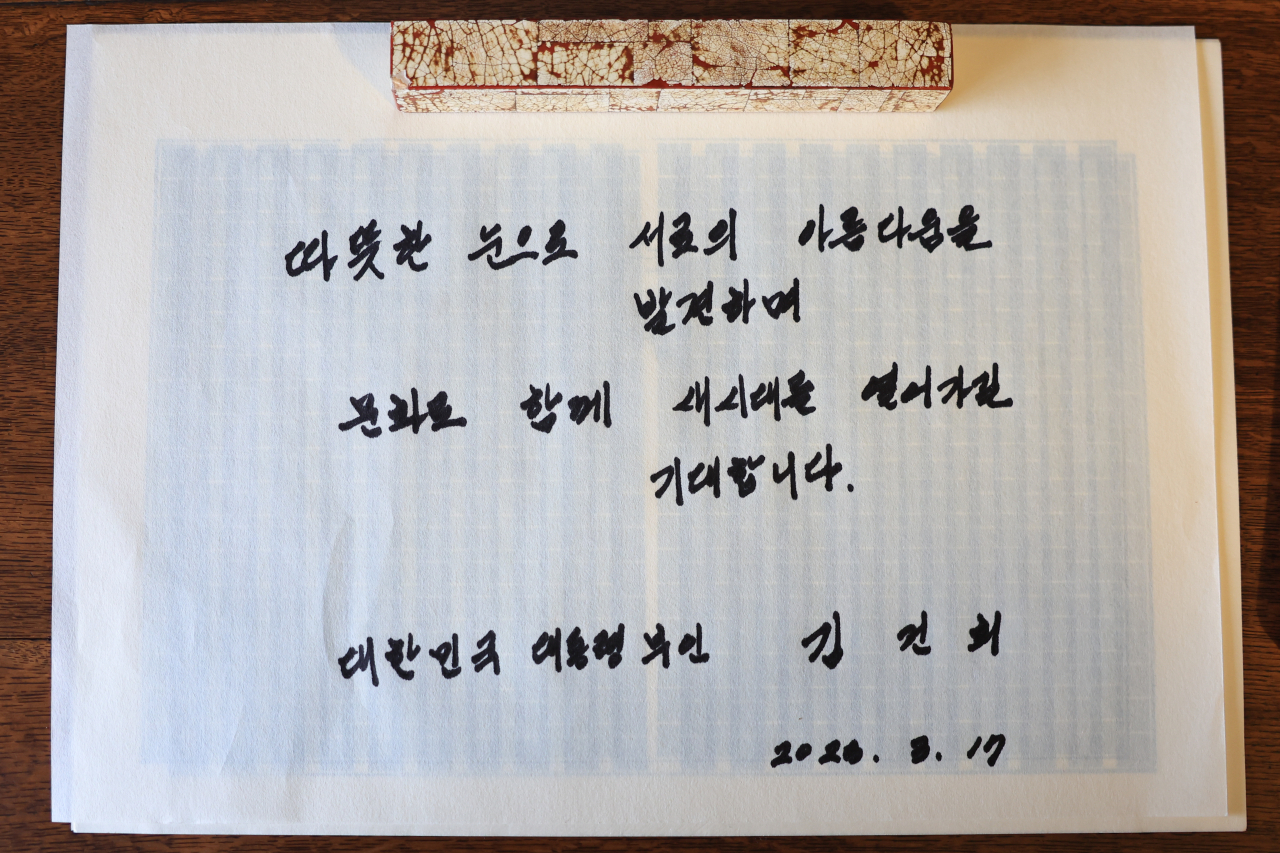 따뜻한 눈으로 서로의 아름다움을
발견하며
문화로 함께 새시대를 열어가길
기대합니다.
대한민국 대통령 부인 김 건 희
2023. 3. 17